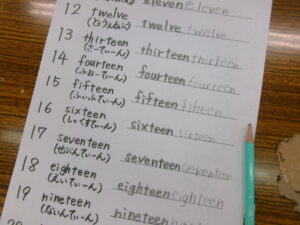 eleven eleven
12 twelve twelve twelve
(とぅえるぶ)
13 thirteen thirteen thirteen
(さーてぃーん)
14 fourteen fourteen fourteen
(ふぉーてぃーん)
15 fifteen fifteen fifteen
(ふぃふてぃーん)
16 sixteen sixteen sixteen
(しっくすてぃーん)
17 seventeen seventeen seventeen
(せぶんてぃーん)
18 eighteen eighteen eighteen
(えいてぃーん)
19 nineteen nineteen
(ないんてぃーん)